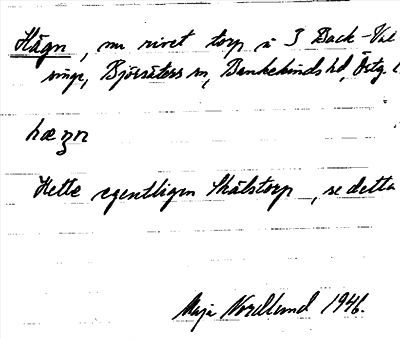 Hägn, nu rivet torp u 3 Back-Val
inge, Björsäters sn, Bankekinds hd, Östg. l
hæგn
Hette egentligen Skälstorp, se detta
Maja Nordlund 1946.